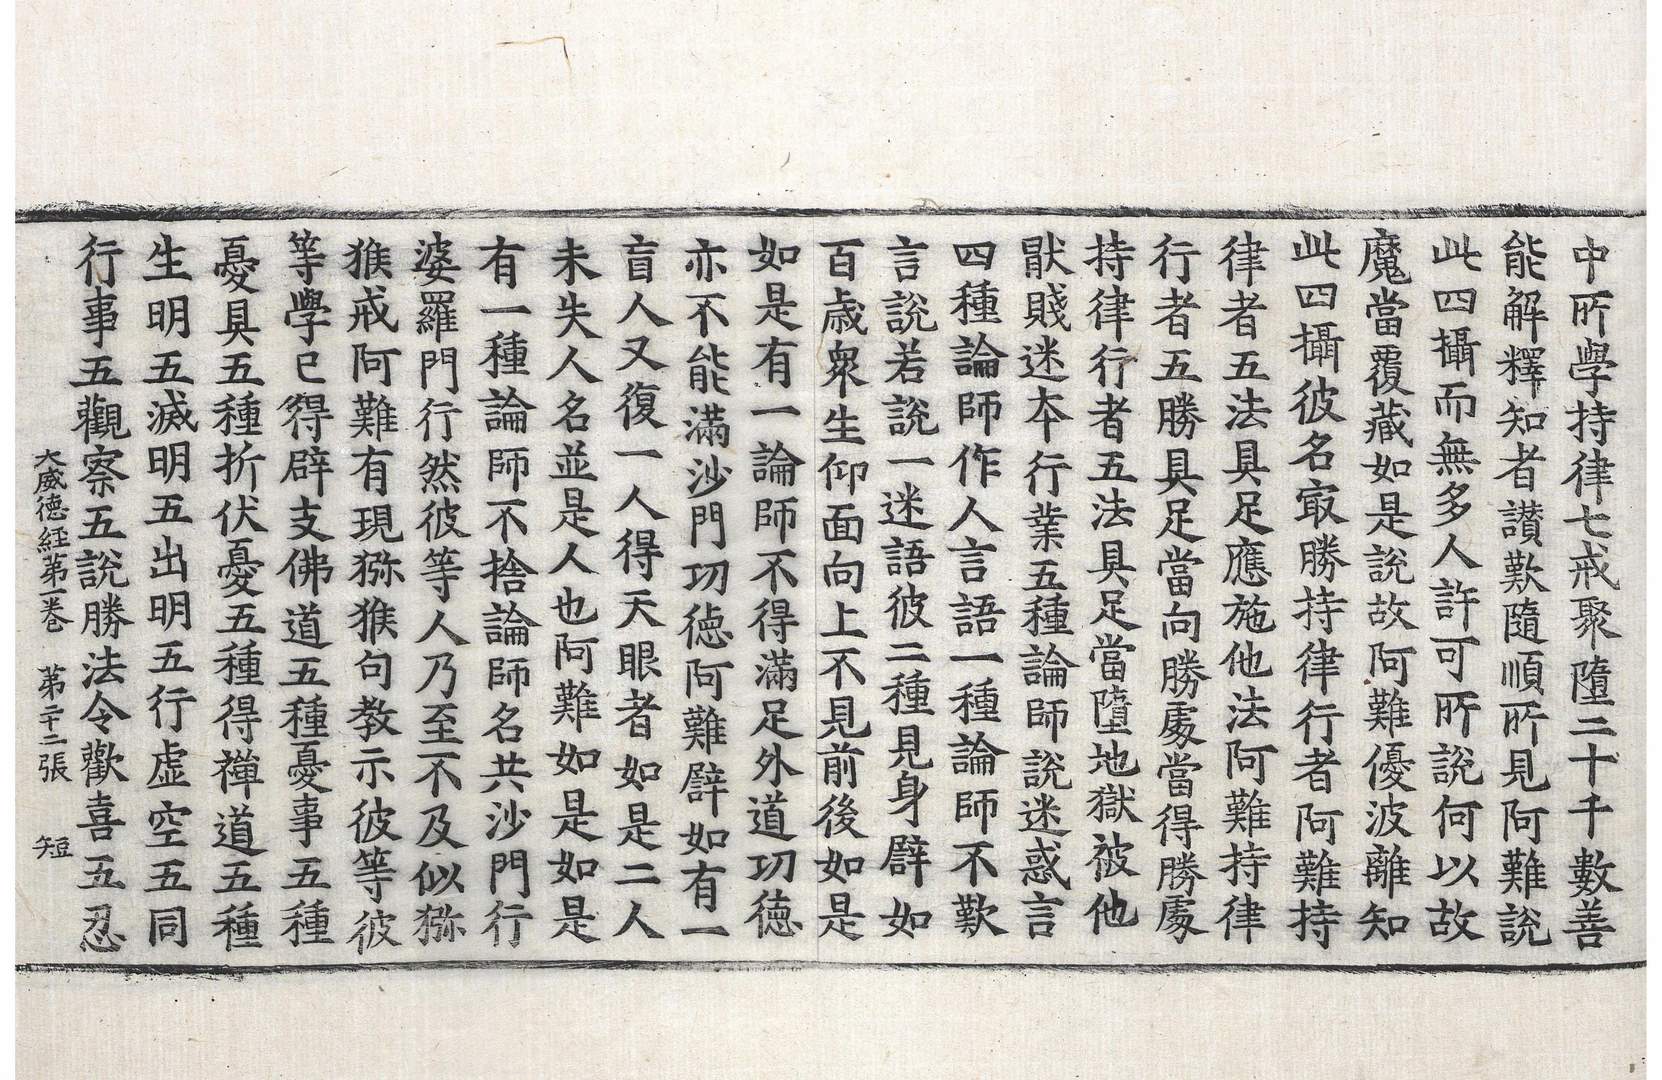 中所學持律七戒聚墮二十千數善
能解釋知者讃歎隨順所見阿難說
此四攝而無多人許可所說何以故
魔當覆藏如是說故阿難優波離知
此四攝彼名㝡勝持律行者阿難持
律者五法具足應施他法阿難持律
行者五勝具足當向勝處當得勝處
持律行者五法具足當墮地獄被他
猒賤迷本行業五種論師說迷惑言
四種論師作人言語一種論師不歎
言說若說一迷語彼二種見身譬如
百歲衆生仰面向上不見前後如是
如是有一論師不得滿足外道功德
亦不能滿沙門功德阿難譬如有一
盲人又復一人得天眼者如是二人
未失人名並是人也阿難如是如是
有一種論師不捨論師名共沙門行
婆羅門行然彼等人乃至不及似猕
猴戒阿難有現猕猴句教示彼等彼
等學已得辟支佛道五種憂事五種
憂具五種折伏憂五種得禪道五種
生明五滅明五出明五行虛空五同
行事五觀察五說勝法令歡喜五忍
大威德經第一卷　第二十二張　短